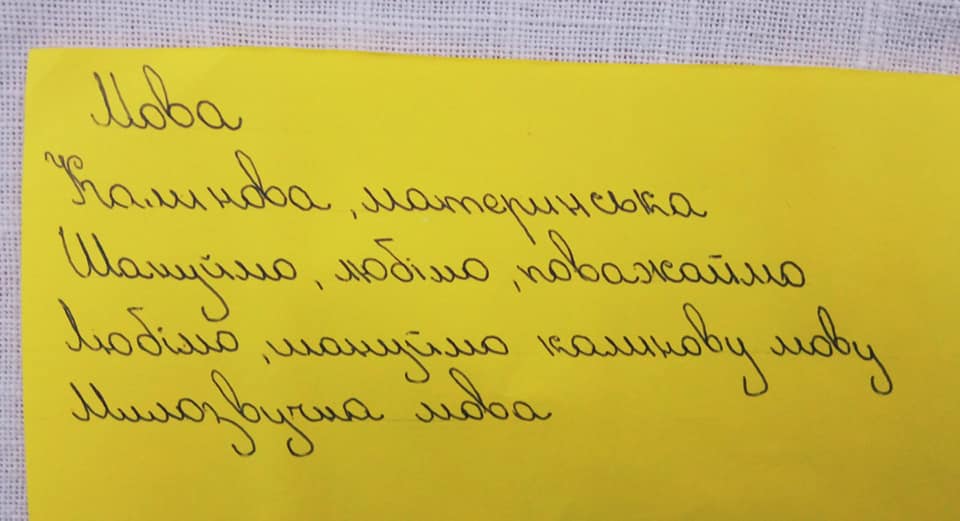 Мова
Калинова, материнська
Шануймо, любімо, поважаймо
Любімо, шануймо калинову мову
Милозвучна мова